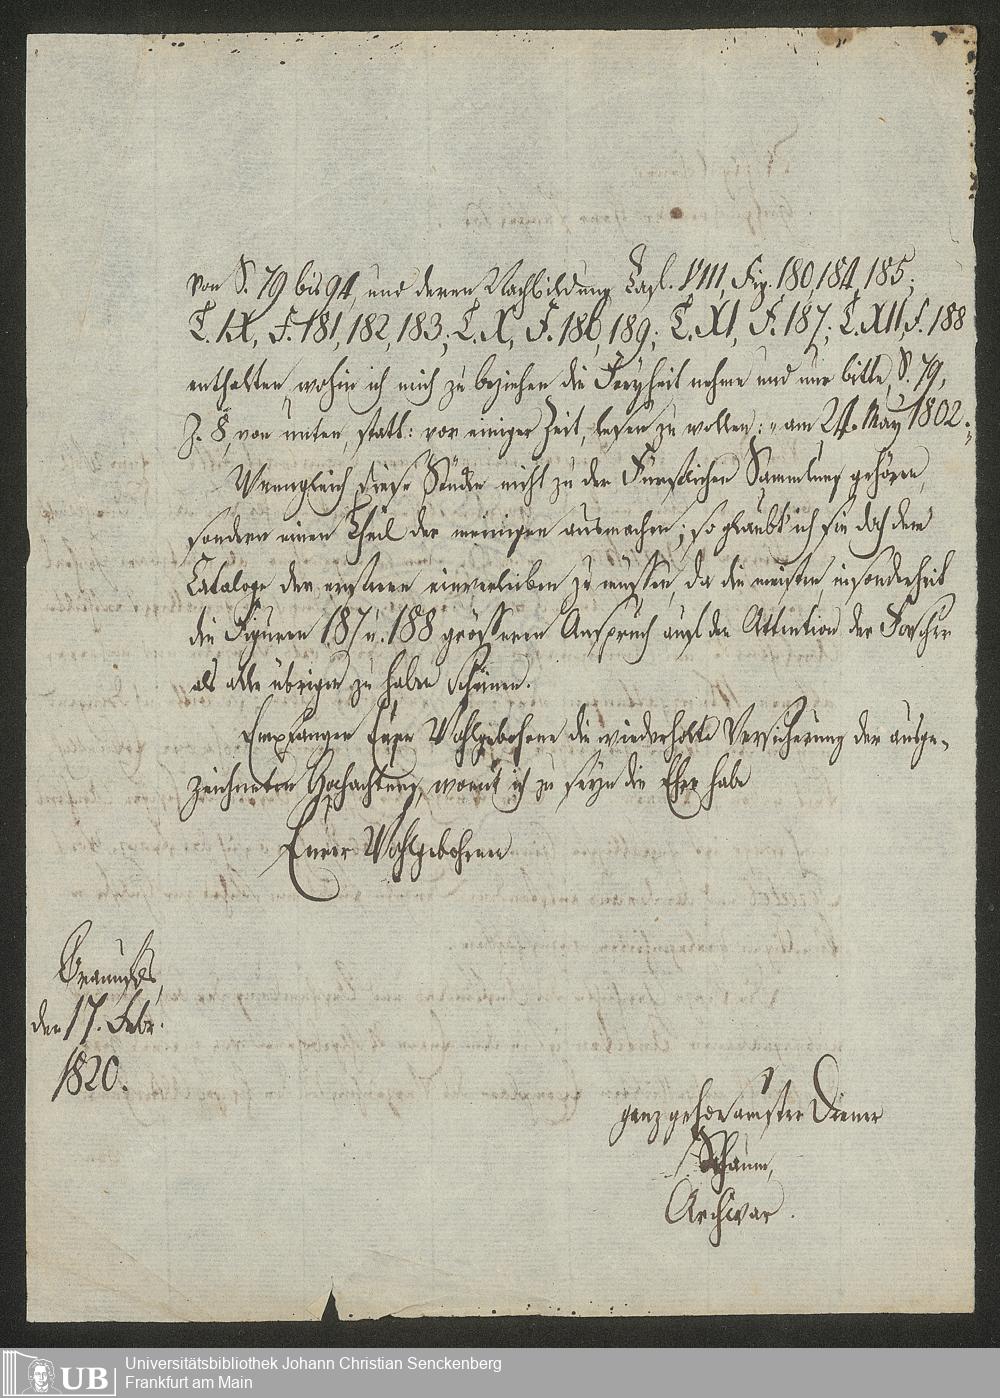 von S. 79 bis 94, und deren Nachbildung Tafl. VIII, Fig. 180, 184, 185;
T. IX, F. 181, 182, 183; T. X, F. 186, 189; T. XI, F. 187; T. XII, F. 188
enthalten, wohin ich mich zu beziehen die Freyheit nehme und nur bitte, S. 79,
Z. 8, von unten, statt: vor einiger Zeit, lesen zu wollen: „am 24. May 1802.„
Wenngleich diese Stücke nicht zu der Fürstlichen Sammlung gehören,
sondern einen Theil der meinigen ausmachen; so glaubt' ich sie doch dem
Cataloge der ersteren einverleiben zu müssen, da die meisten, insonderheit
die Figuren 187 u. 188 grösseren Anspruch auf die Attention der Forscher
als alle übrigen zu haben scheinen.
Empfangen Euer Wohlgebohren die wiederholte Versicherung der ausge-
zeichneten Hochachtung, womit ich zu seyn die Ehre habe
Euerer Wohlgebohren
Braunfels,
den 17. Febr.
1820.
ganz gehorsamster Diener
Schaum,
Archivar.
UB
Universitätsbibliothek Johann Christian Senckenberg
Frankfurt am Main